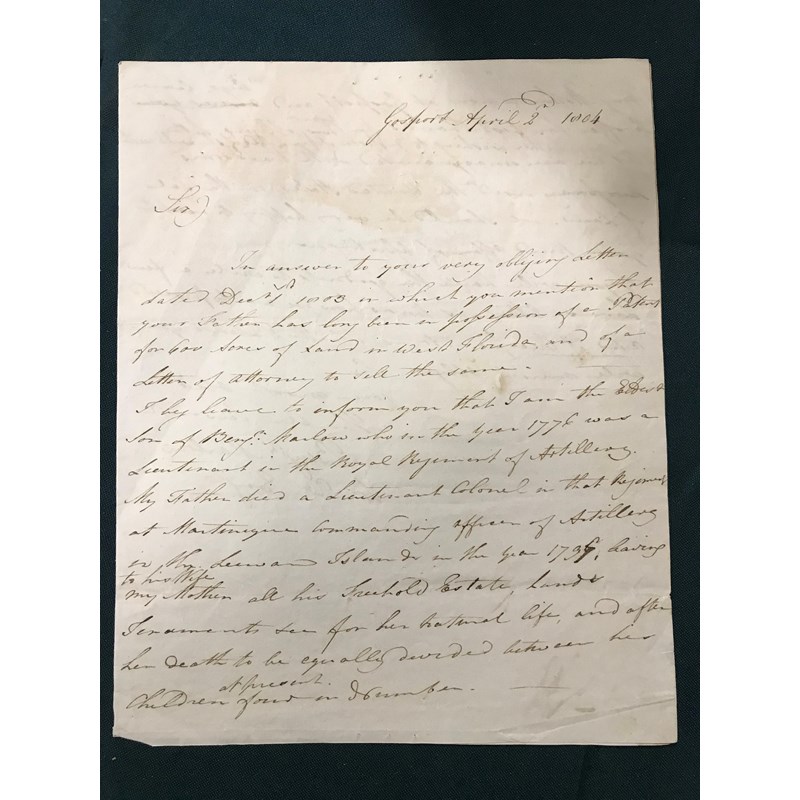 Gosport April 2d 1804
Sir
In answer to your very obliging Letter
dated Decr 1st 1803 in which you mention that
your Father has long been in possession of a Patent
for 600 Acres of Land in West Florida, and of a
Letter of Attorney to sell the same.
I beg leave to inform you that I am the Eldest
Son of Benjn: Marlow who in the year 1776 was a
Lieutenant in the Royal Regiment of Artillery.
My Father died a Lieutenant Colonel in that Regiment
at Martinique Commanding officer of Artillery
in the Leeward Islands in the year 179, leaving
to his Wife
my Mother all his Freehold Estate, Lands
Tenaments &c for her natural life, and after
her death to be equally divided between her
at present.
Children four in Number.